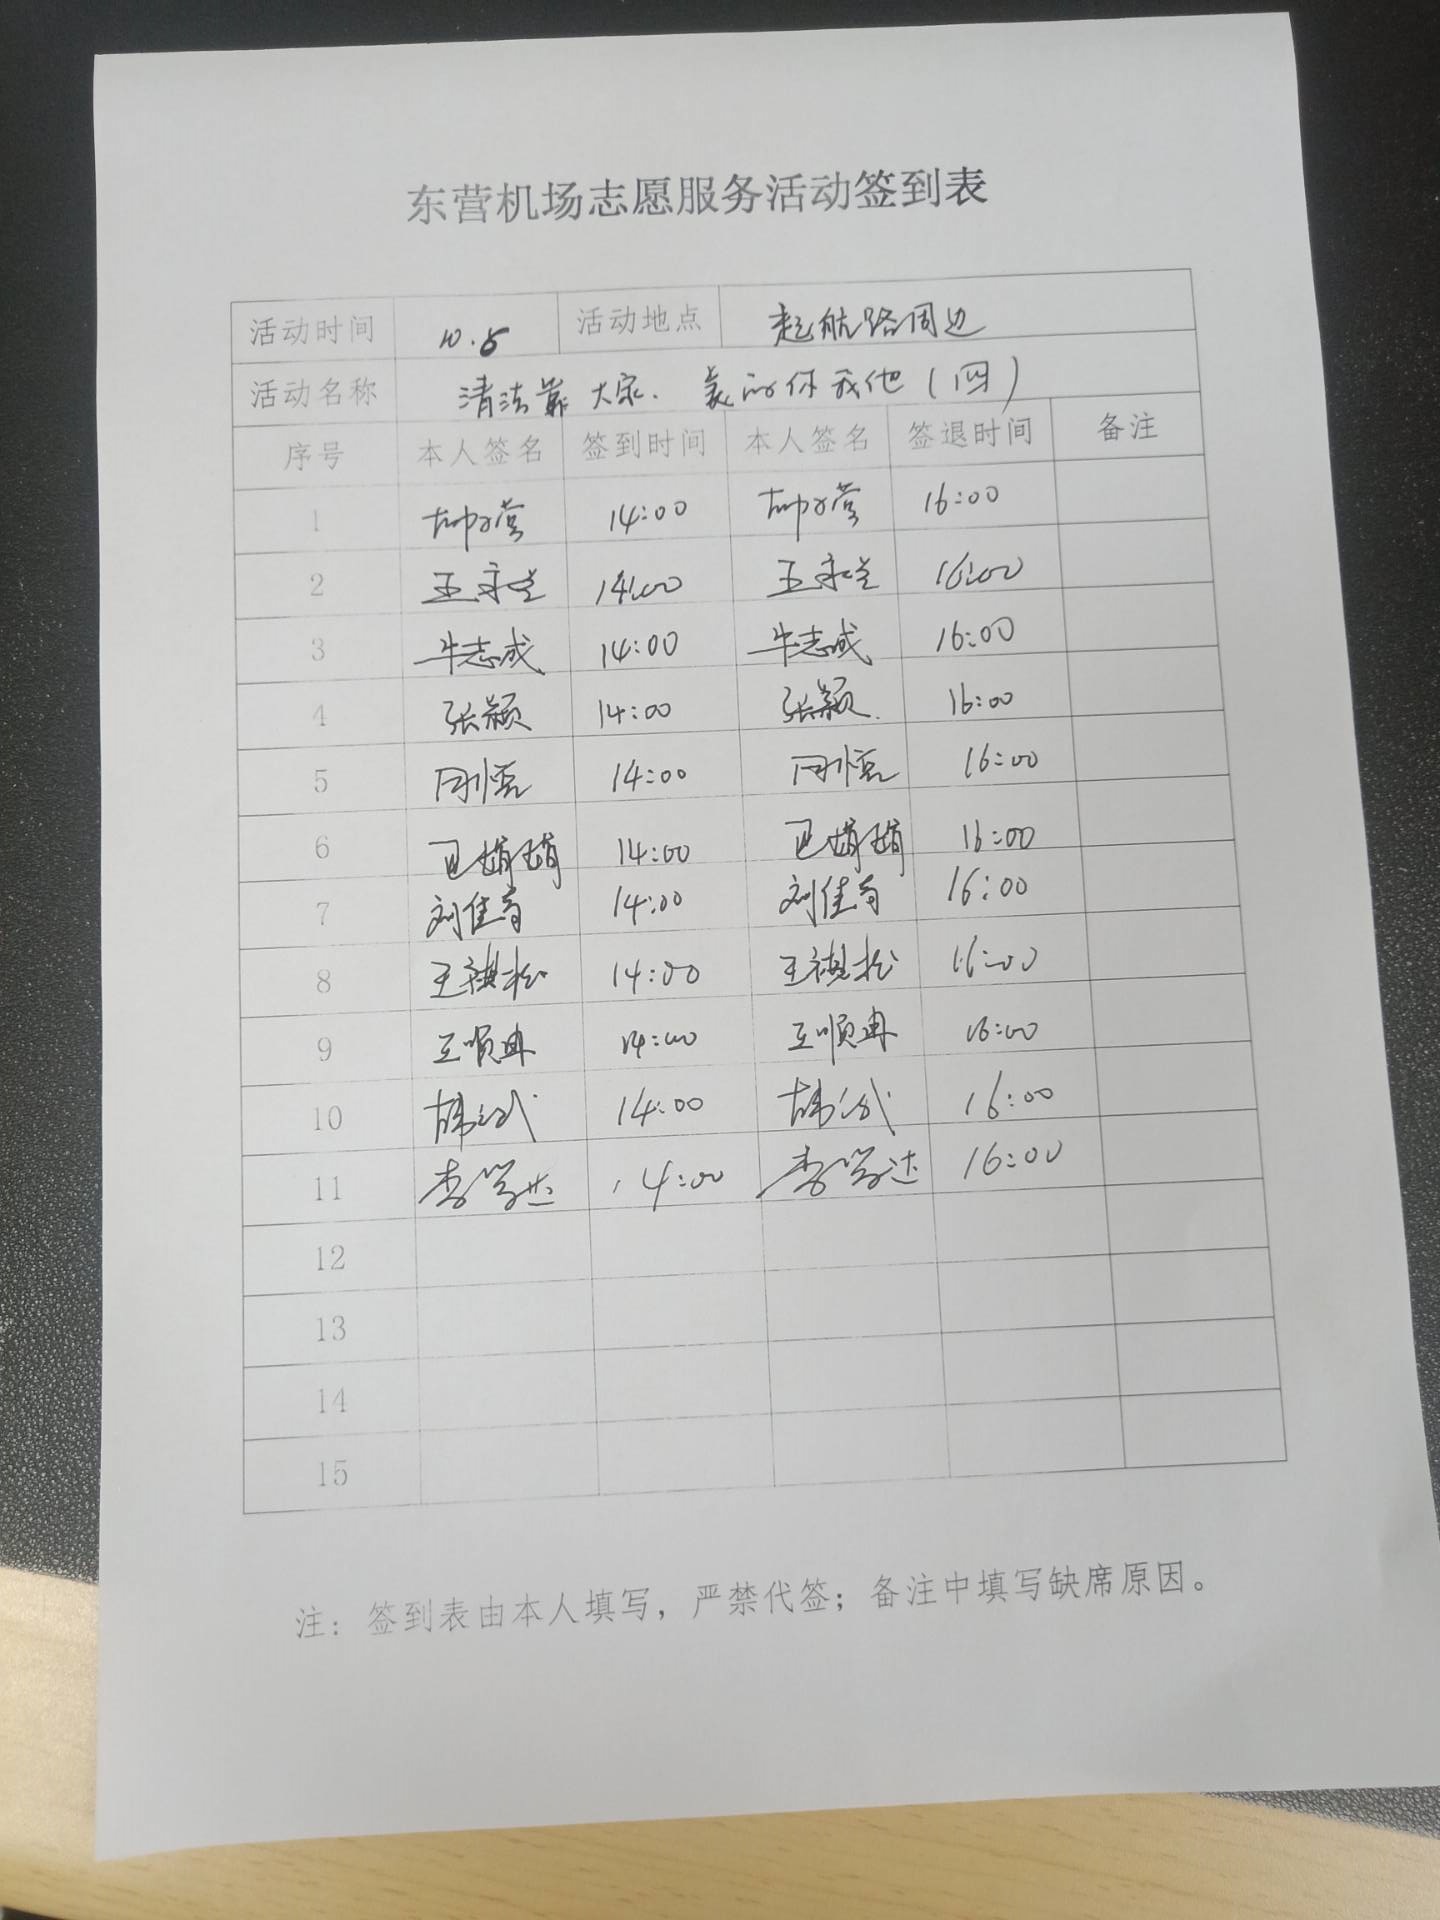 东营机场志愿服务活动签到表
活动时间 10.5 活动地点 起航路周边
活动名称 清洁靠大家、美的你我他(四)
序号 本人签名 签到时间 本人签名 签退时间 备注
1 14:00 16:00
2 14:00 16:00
3 牛志成 14:00 牛志成 16:00
4 张颖 14:00 张颖 16:00
5 14:00 16:00
6 14:00 16:00
7 14:00 16:00
8 王祺松 14:00 王祺松 16:00
9 王顺冉 14:00 王顺冉 16:00
10 14:00 16:00
11 李学达 14:00 李学达 16:00
12
13
14
15
注：签到表由本人填写，严禁代签；备注中填写缺席原因。